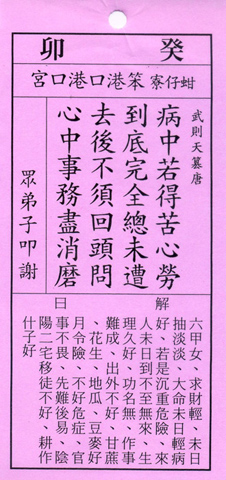 癸卯
蚶仔寮 笨港口港口宮
武則天篡唐
病中若得苦心勞
到底完全總未遭
去後不須回頭問
心中事務盡消磨
眾弟子叩謝
解曰
六甲女、求財輕、未日
抽淡淡、大命未日輕病
好、若是沉重危險、來
人未日到不至無來、生
理久好、功名無、作事
難成、出外不好、甘蔗
、花生、地瓜、豆麥好
月令險、不好危症、官
事不畏、先難後易、陰
陽二宅移徒不好、耕作
什子好